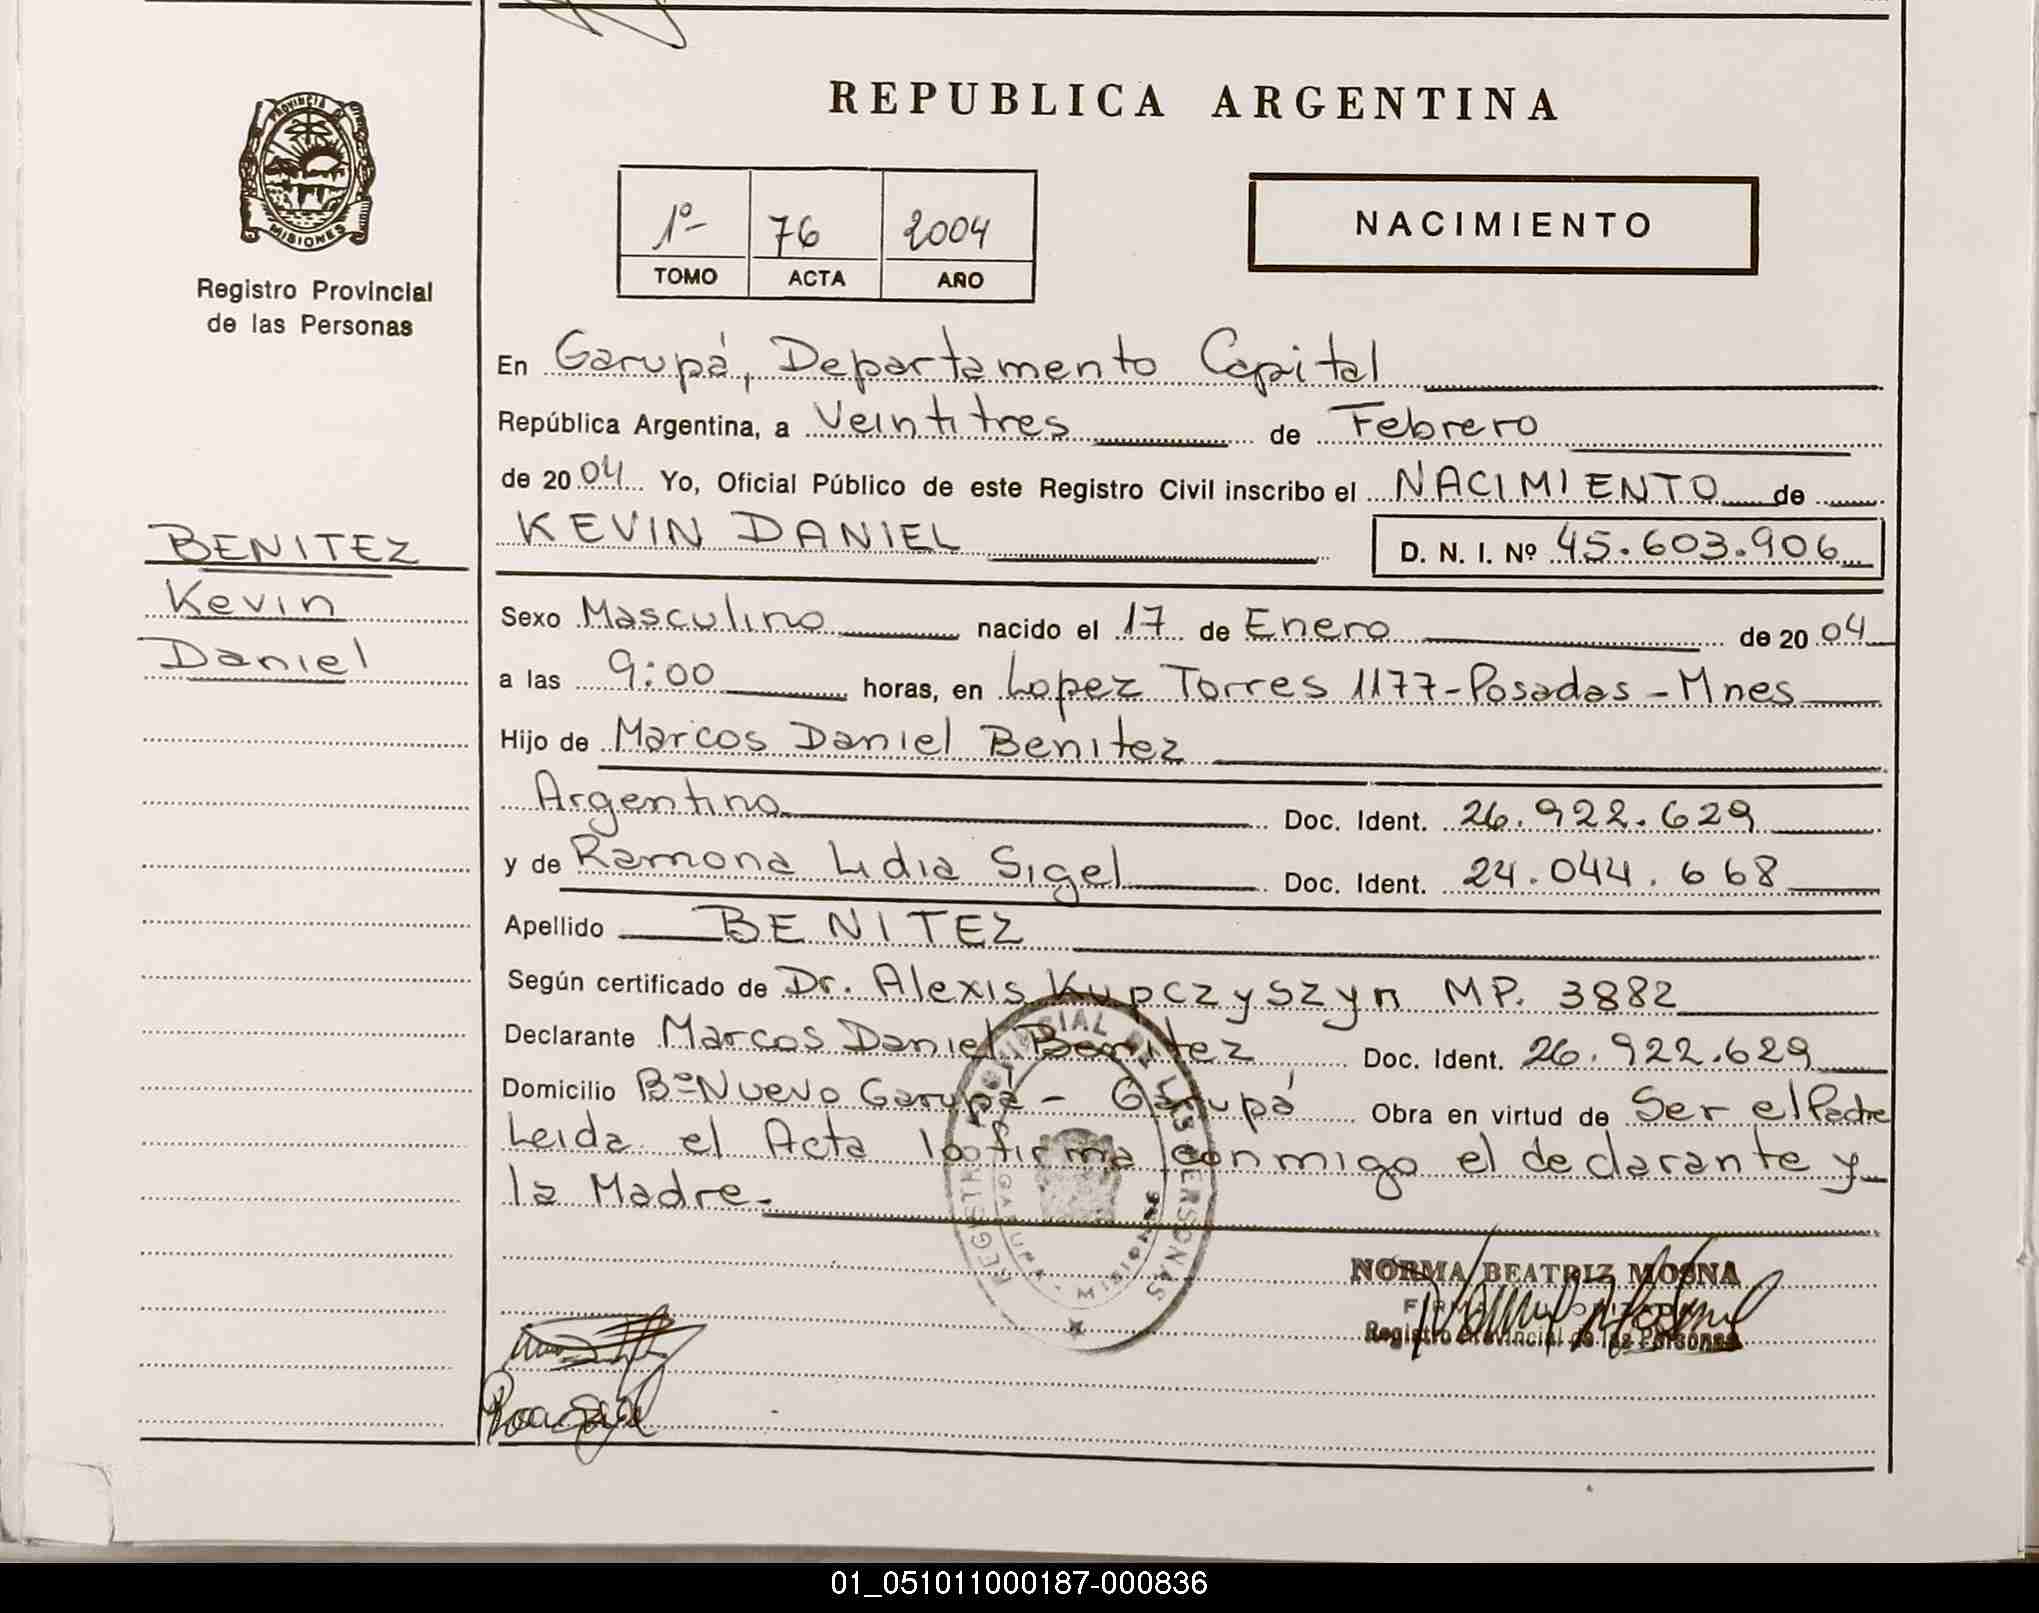 REPUBLICA ARGENTINA
PROVINCIA DE
MISIONES
Registro Provincial
de las Personas
1º- 76 2004
TOMO ACTA AÑO
NACIMIENTO
En Garupá, Departamento Capital
República Argentina, a Veintitres de Febrero
de 2004 Yo, Oficial Público de este Registro Civil inscribo el NACIMIENTO de
KEVIN DANIEL D. N. I. Nº 45.603.906
BENITEZ
Kevin
Daniel
Sexo Masculino nacido el 17 de Enero de 2004
a las 9:00 horas, en Lopez Torres 1177-Posadas-Mnes
Hijo de Marcos Daniel Benitez
Argentino Doc. Ident. 26.922.629
y de Ramona Lidia Sigel Doc. Ident. 24.044.668
Apellido BENITEZ
Según certificado de Dr. Alexis Kupczyszyn MP. 3882
Declarante Marcos Daniel Benitez Doc. Ident. 26.922.629
Domicilio Bº Nuevo Garupá - Garupá Obra en virtud de Ser el Padre
Leida el Acta la firma conmigo el declarante y
la Madre.-
REGISTRO PROVINCIAL DE LAS PERSONAS
GARUPA - MISIONES
NORMA BEATRIZ MOSNA
FIRMA AUTORIZADA
Registro Provincial de las Personas
01_051011000187-000836